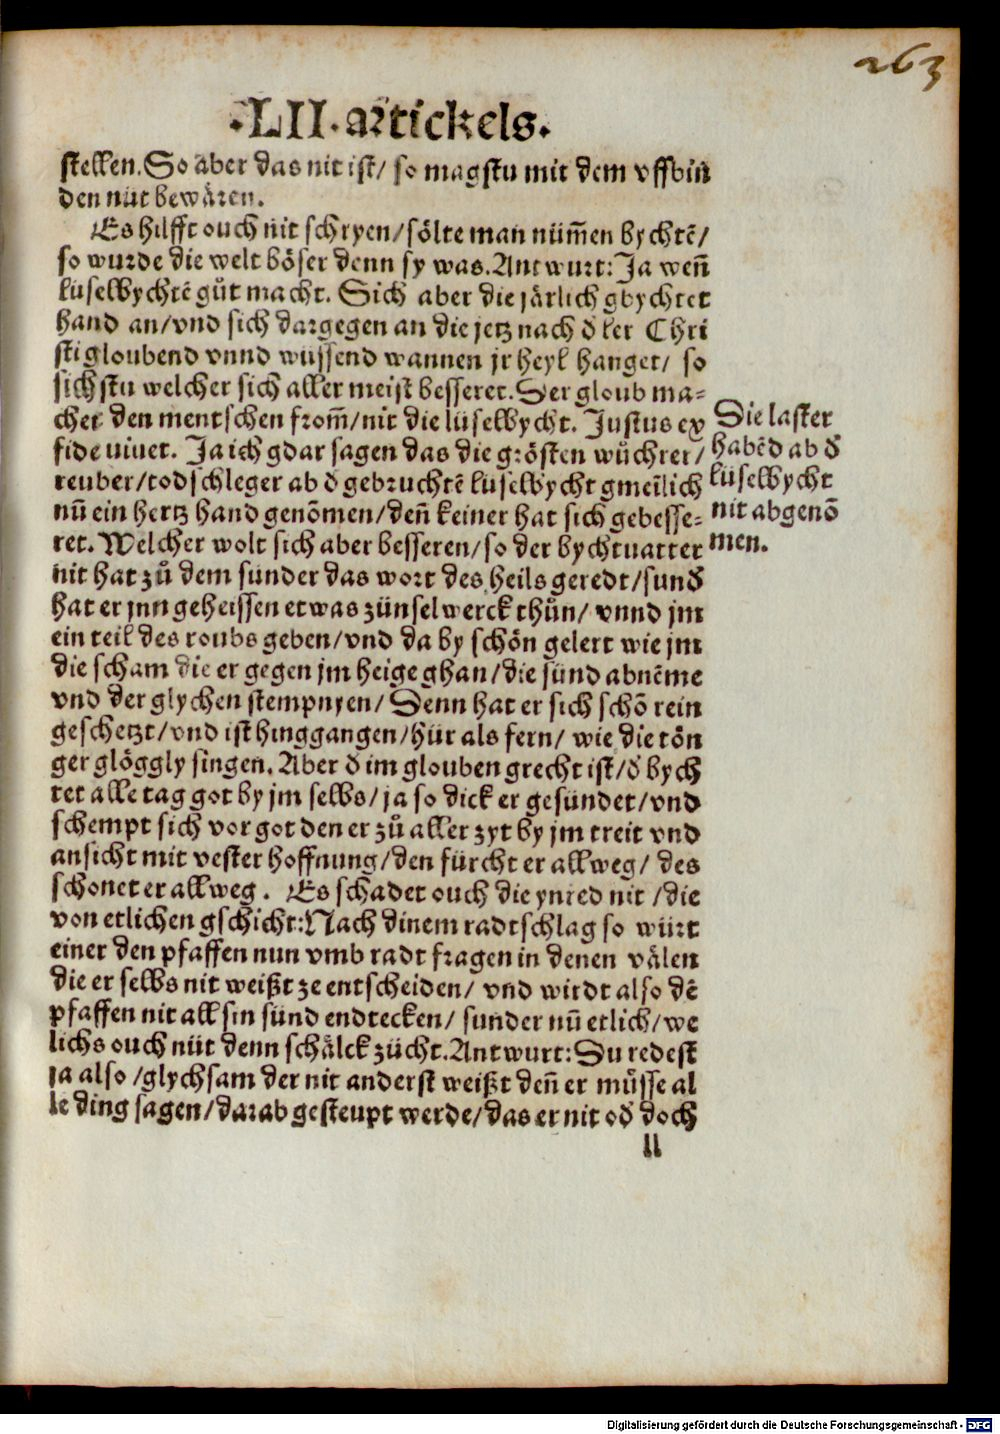 263
·LII· artickels.
stellen. So aber das nit ist/ so magstu mit dem vffbin
den nüt bewären.
Es hilfft ouch nit schryen/ sölte man nüm̃en bychtē/
so wurde die welt böser denn sy was. Antwurt: Ja weñ
lüselbychtē gůt macht. Sich aber die järlich gbychtet
hand an/ vnd sich dargegen an die jetz nach đ ler Chri
sti gloubend vnnd wüssend wannen jr heyl hanget/ so
sichstu welcher sich aller meist besseret. Der gloub ma-
chet den mentschen from̃/ nit die lüselbycht. Justus ex
fide uiuet. Ja ich gdar sagen das die grösten wůchrer/
reuber/ todschleger ab đ gebruchtē lüselbycht gmeĩlich
nũ ein hertz hand genõmen/ deñ keiner hat sich gebesse-
ret. Welcher wolt sich aber besseren/ so der bychtuatter
nit hat zů dem sunder das wort des heils geredt/ sunđ
hat er jnn geheissen etwas zünselwerck thůn/ vnnd jm
ein teil des roubs geben/ vnd da by schön gelert wie jm
die scham die er gegen jm heige ghan/ die sünd abnēme
vnd der glychen stempnyen/ Denn hat er sich schõ rein
geschetzt/ vnd ist hinggangen/ hür als fern/ wie die tön
ger glöggly singen. Aber đ im glouben grecht ist/ đ bych
tet alle tag got by jm selbs/ ja so dick er gesündet/ vnd
schempt sich vor got den er zů aller zyt by jm treit vnd
ansicht mit vester hoffnung/ den fürcht er allweg/ des
schonet er allweg. Es schadet ouch die ynred nit/ die
von etlichen gschicht: Nach dinem radtschlag so würt
einer den pfaffen nun vmb radt fragen in denen välen
die er selbs nit weißt ze entscheiden/ vnd wirdt also dē
pfaffen nit all sin sünd endtecken/ sunder nũ etlich/ we
lichs ouch nüt denn schälck zücht. Antwurt: Du redest
ja also/ glychsam der nit anderst weißt deñ er můsse al
le ding sagen/ darab gesteupt werde/ das er nit ođ doch
ll
Die laster
habēd ab đ
lüselbycht
nit abgenõ
men.
Digitalisierung gefördert durch die Deutsche Forschungsgemeinschaft - DFG